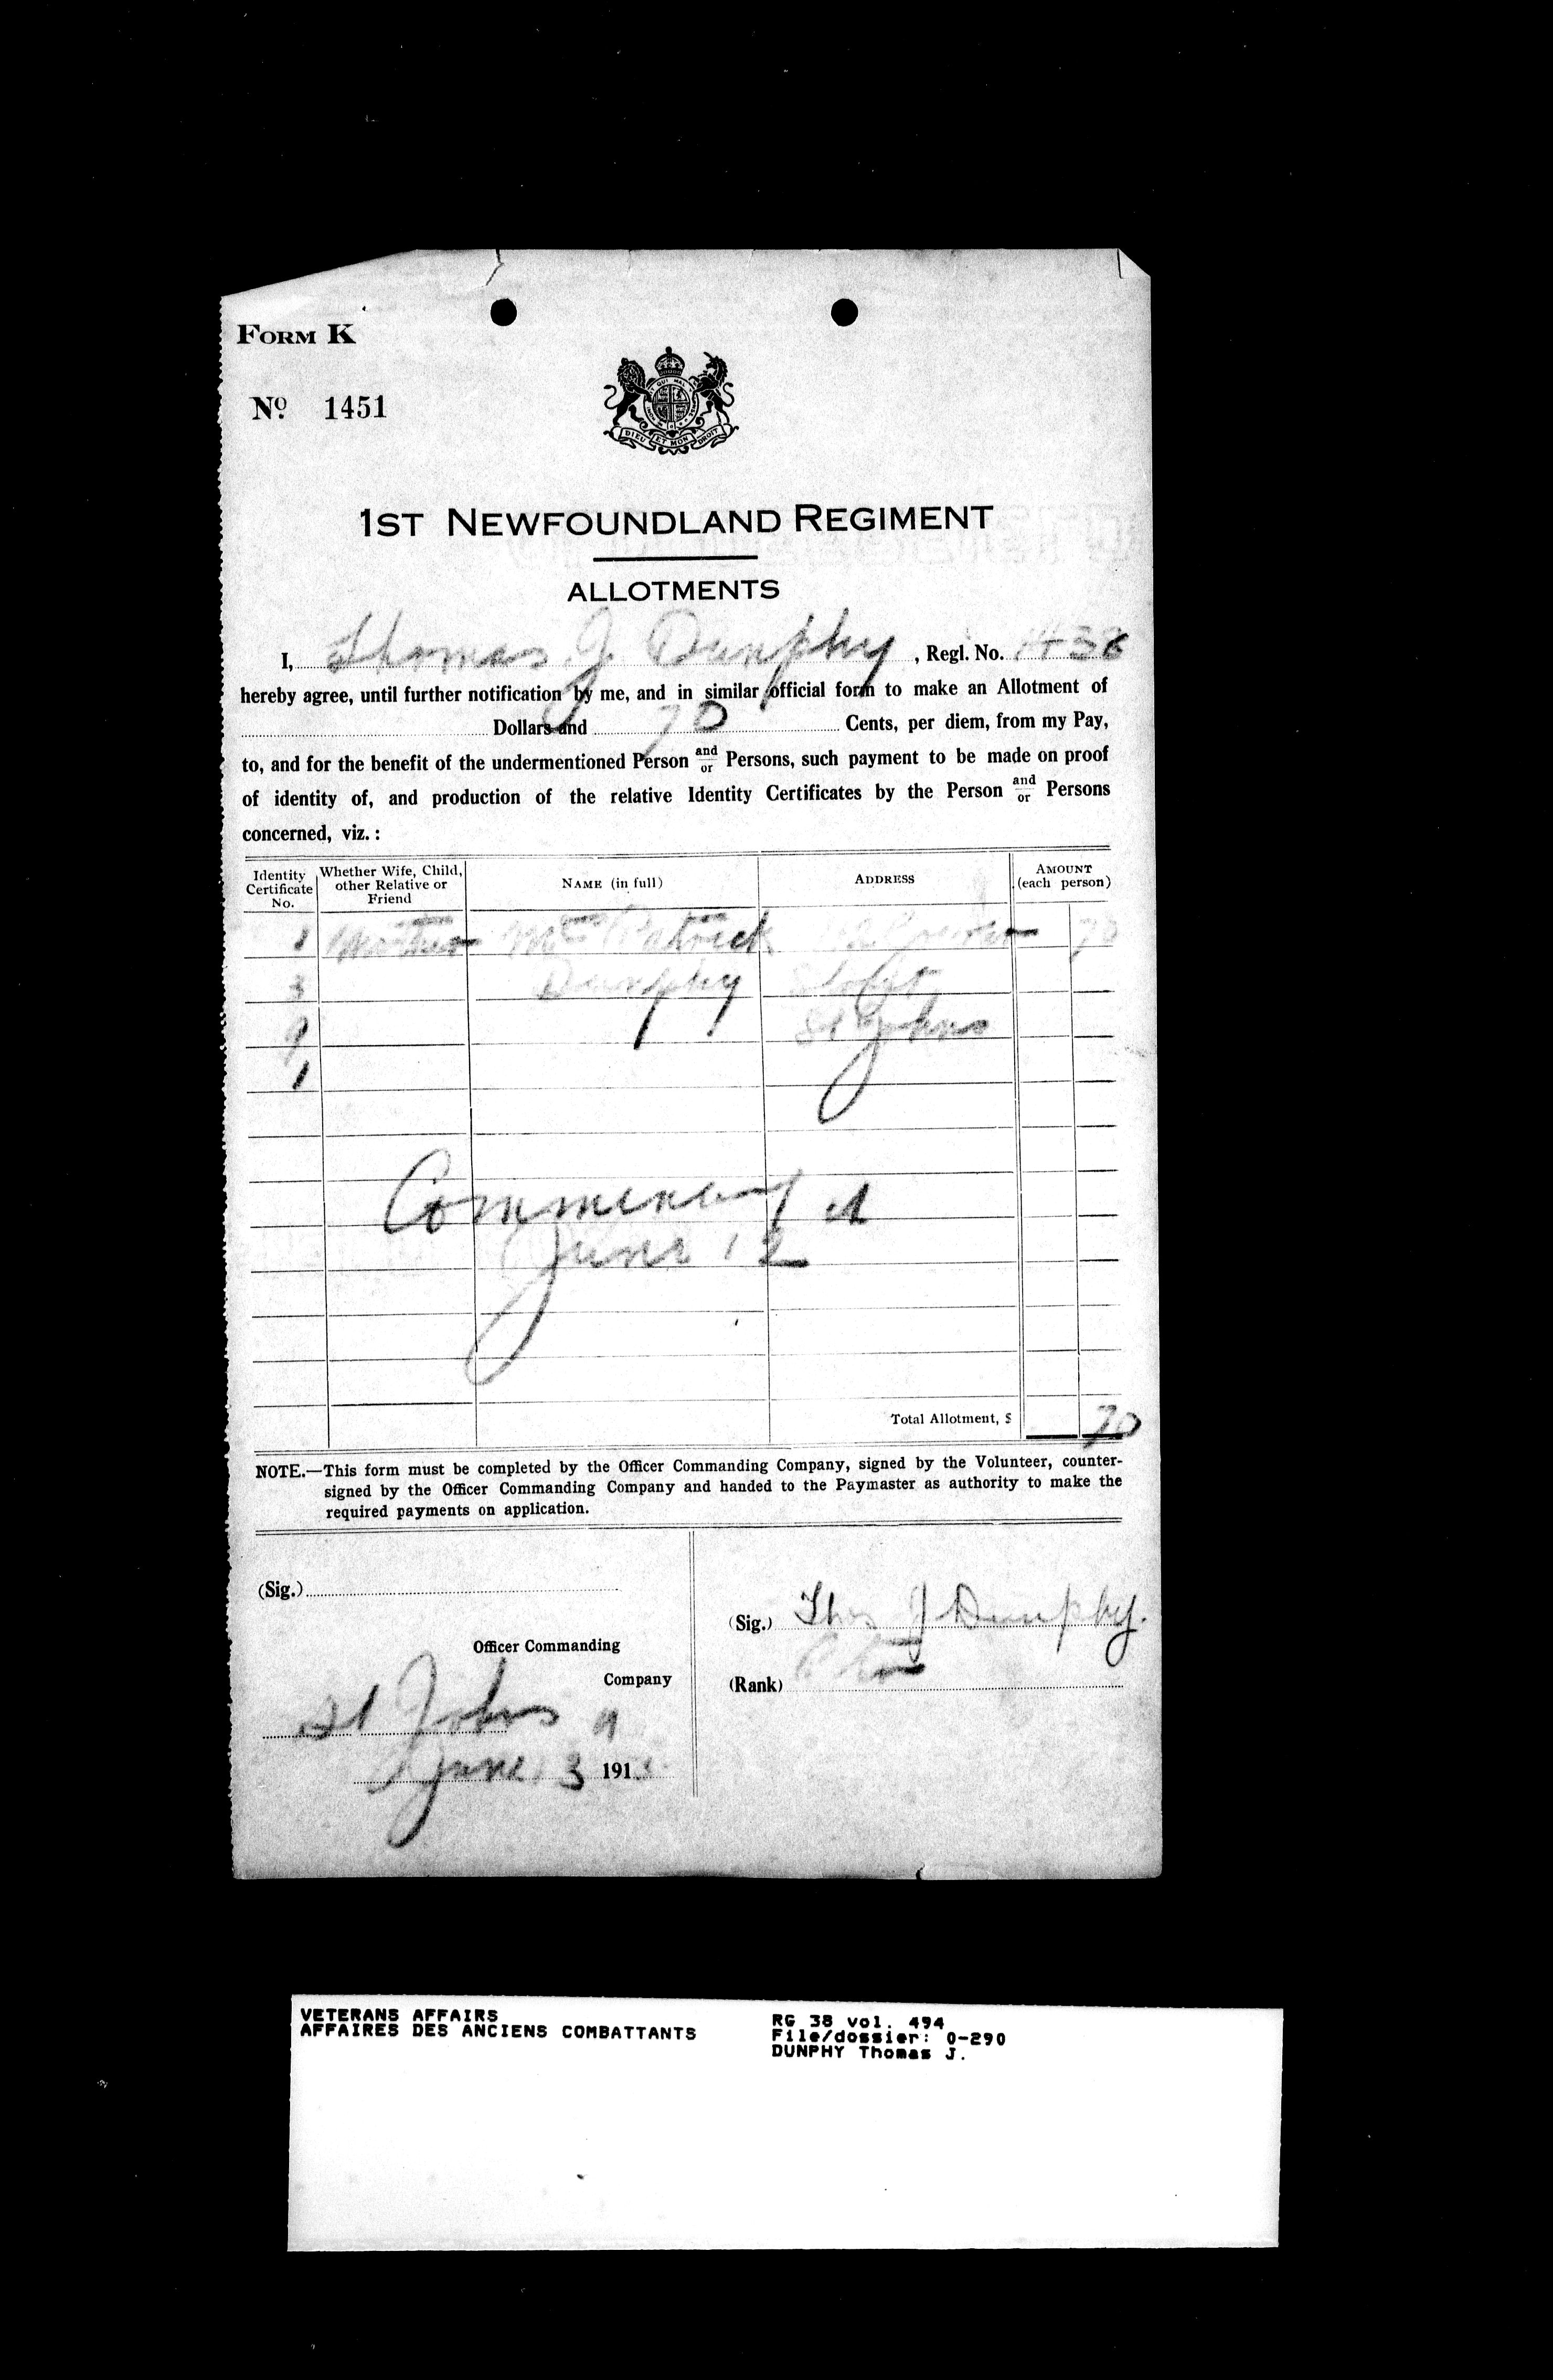 FORM K
No. 1451
QUI MAL
DIEU ET MON DROIT
1ST NEWFOUNDLAND REGIMENT
ALLOTMENTS
I, Thomas J. Dunphy, Regl. No. 1436
hereby agree, until further notification by me, and in similar official form to make an Allotment of
Dollars and 70 Cents, per diem, from my Pay,
to, and for the benefit of the undermentioned Person and/or Persons, such payment to be made on proof
of identity of, and production of the relative Identity Certificates by the Person and/or Persons
concerned, viz.:
Identity Certificate No. Whether Wife, Child, other Relative or Friend NAME (in full) ADDRESS AMOUNT (each person)
1 Mother Mrs Patrick 70
3 Dunphy
9 St Johns
1
Commencing
June 12
Total Allotment, $ 70
NOTE.—This form must be completed by the Officer Commanding Company, signed by the Volunteer, counter-
signed by the Officer Commanding Company and handed to the Paymaster as authority to make the
required payments on application.
(Sig.)
Officer Commanding
Company
(Sig.) Thos J Dunphy.
(Rank) Pte
St Johns
June 3 191
VETERANS AFFAIRS
AFFAIRES DES ANCIENS COMBATTANTS
RG 38 vol. 494
File/dossier: 0-290
DUNPHY Thomas J.